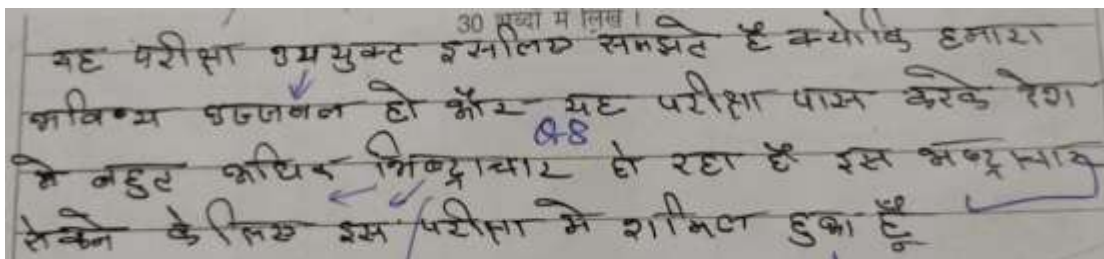 30 शब्दों में लिखें।
यह परीक्षा उपयुक्ट इसलिए समझते है क्योकि हमारा
भविष्य उज्जवल हो और यह परीक्षा पास करके देश
08
मे बहुत अधिक भिष्ट्राचार हो रहा है इस भष्ट्राचार
रोकने के लिए इस परीक्षा मे शामिल हुआ हूँ